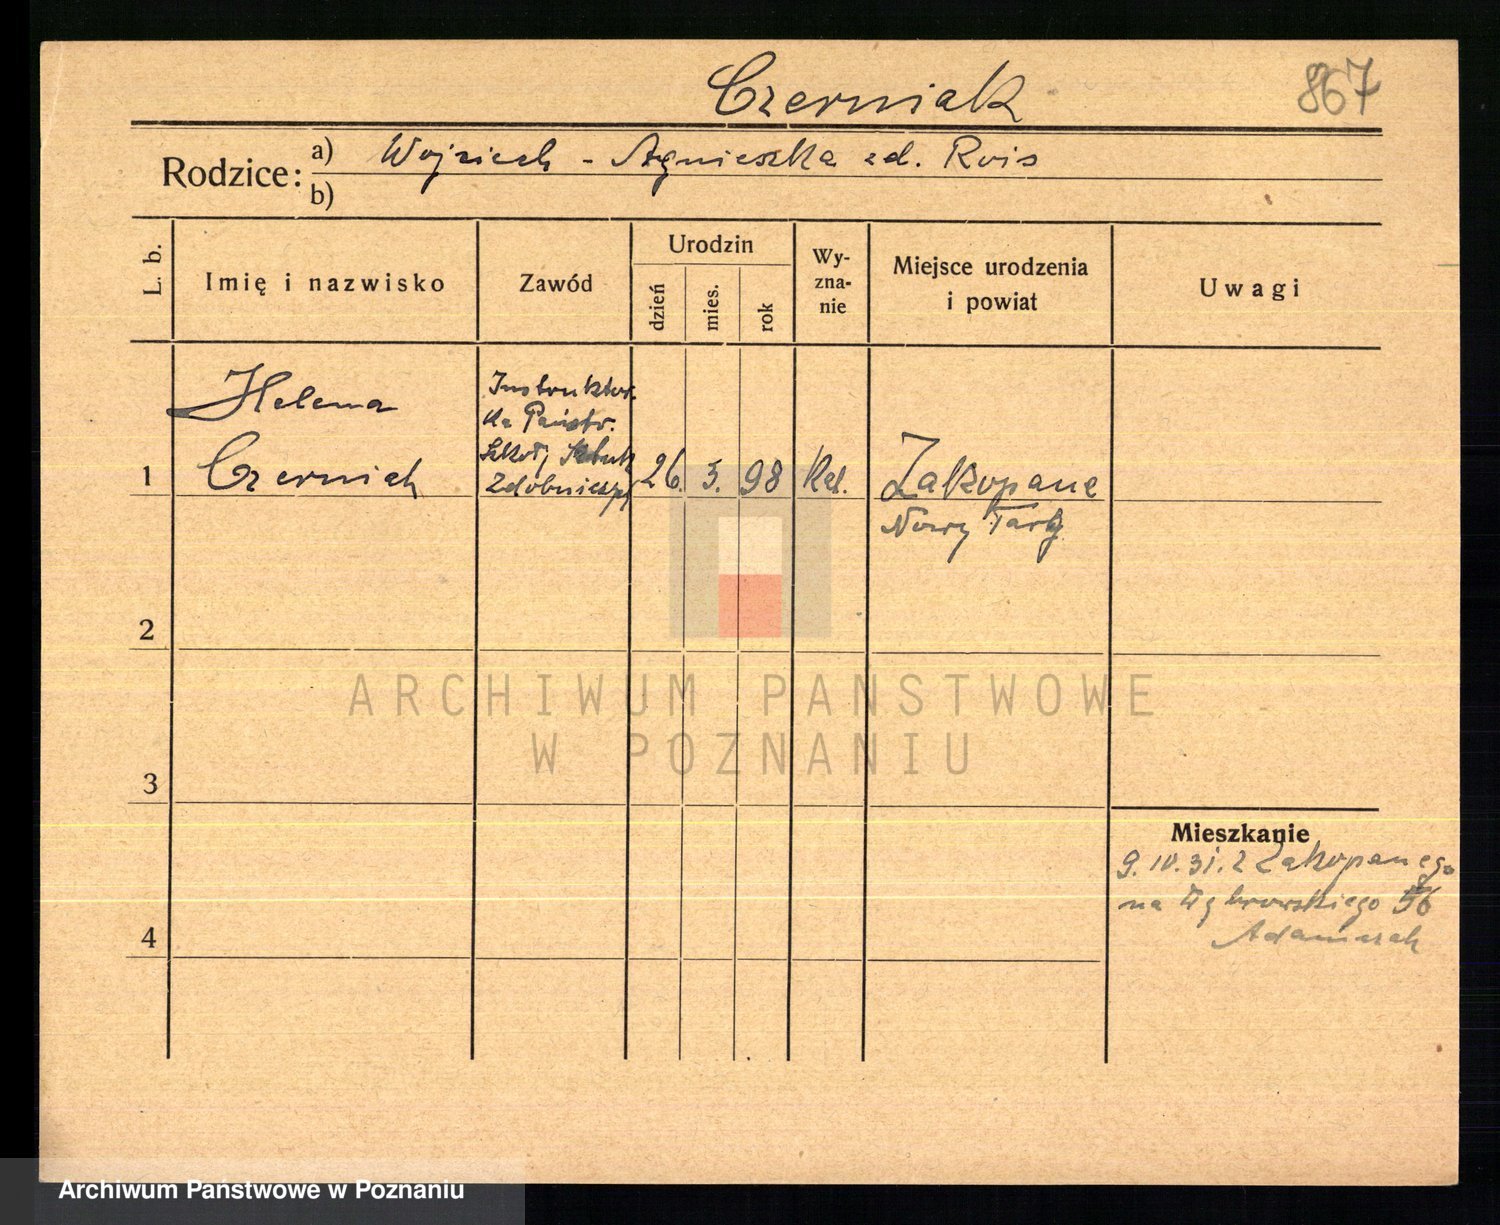 Czerniak
867
Rodzice: a) Wojciech - Agnieszka zd. Rois
b)
L. b.
Imię i nazwisko
Zawód
Urodzin
dzień
mies.
rok
Wy-
zna-
nie
Miejsce urodzenia
i powiat
Uwagi
1
Helena
Czerniak
Instruktor.
ka Państw.
Szkoły Sztuk
Zdobniczych
26. 3. 98
Kat.
Zakopane
Nowy Targ
2
3
4
Mieszkanie
9.IV.31. z Zakopanego
na Dąbrowskiego 56
Adamczak
ARCHIWUM PAŃSTWOWE
W POZNANIU
Archiwum Państwowe w Poznaniu